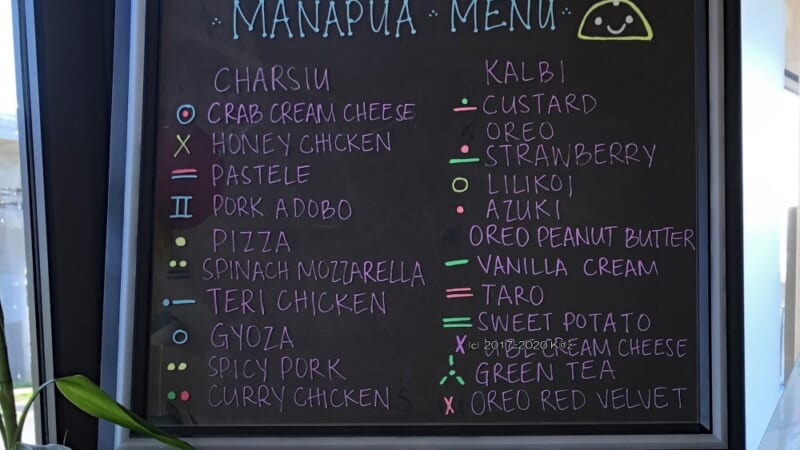 MANAPUA MENU
CHARSIU
CRAB CREAM CHEESE
HONEY CHICKEN
PASTELE
PORK ADOBO
PIZZA
SPINACH MOZZARELLA
TERI CHICKEN
GYOZA
SPICY PORK
CURRY CHICKEN
KALBI
CUSTARD
OREO
STRAWBERRY
LILIKOI
AZUKI
OREO PEANUT BUTTER
VANILLA CREAM
TARO
SWEET POTATO
UBE CREAM CHEESE
(c) 2017-2020
GREEN TEA
OREO RED VELVET